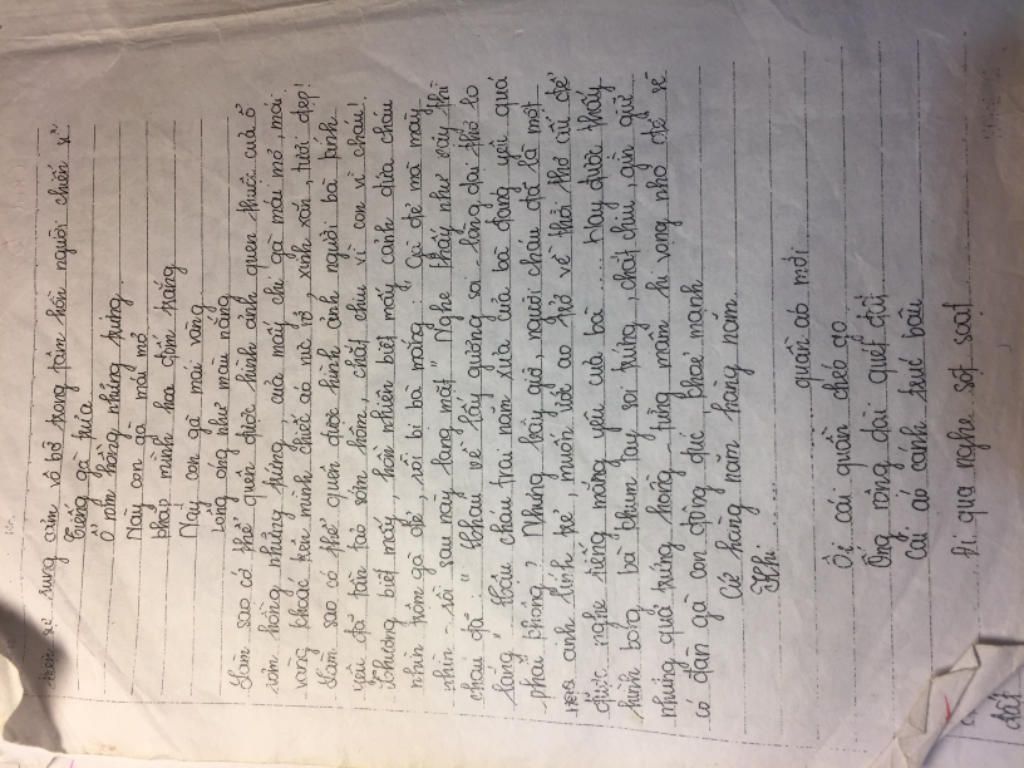 rung cảm vô bờ trong tâm hồn người chiến sĩ
Tiếng gà trưa
Ổ rơm hồng những trứng
Này con gà mái mơ
Khắp mình hoa đốm trắng
Này con gà mái vàng
Lông óng như màu nắng
Làm sao có thể quên được hình ảnh quen thuộc của ổ
rơm hồng những trứng, của mấy chị gà mái mơ, mái
vàng khoác trên mình chiếc áo rực rỡ, xinh xắn, tươi đẹp!
Làm sao có thể quên được hình ảnh người bà kính
yêu đã tần tảo sớm hôm, chắt chiu vì con vì cháu!
Thương biết mấy, hồn nhiên biết mấy cảnh đứa cháu
nhìn trộm gà đẻ, rồi bị bà mắng: " Gà đẻ mà mày
nhìn - rồi sau này lang mặt" Nghe thấy như vậy thì
cháu đã: " Cháu về lấy gương soi - lòng dại thơ lo
lắng" Hẳn cháu trai năm xưa của bà đáng yêu quá
phải không? Nhưng bây giờ, người cháu đó là một
anh lính trẻ, muốn ước ao trở về thời thơ ấu để
được nghe tiếng mắng yêu của bà..... Hay được thấy
hình bóng bà khum tay soi trứng, chắt chiu, gìn giữ
những quả trứng hồng - từng mầm hi vọng nhỏ để sẽ
có đàn gà con đông đúc, khoẻ mạnh
Cứ hàng năm hàng năm
Khi
quần áo mới
Ôi cái quần chéo go
Ống rộng dài quét đất
Cái áo cánh trúc bâu
Đi qua nghe sột soạt
đất